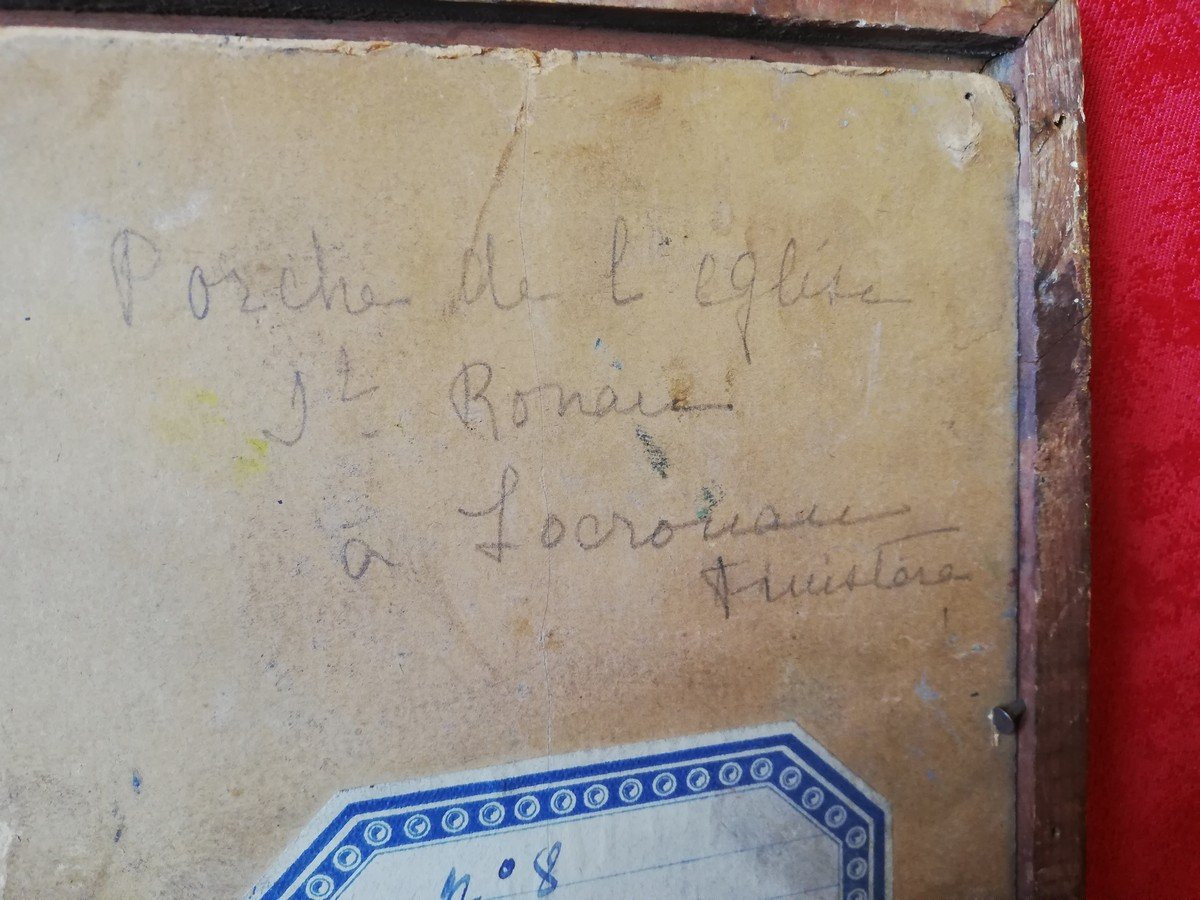 Porche de l'eglise
St Ronan
à Locronan
Finistère
n° 8